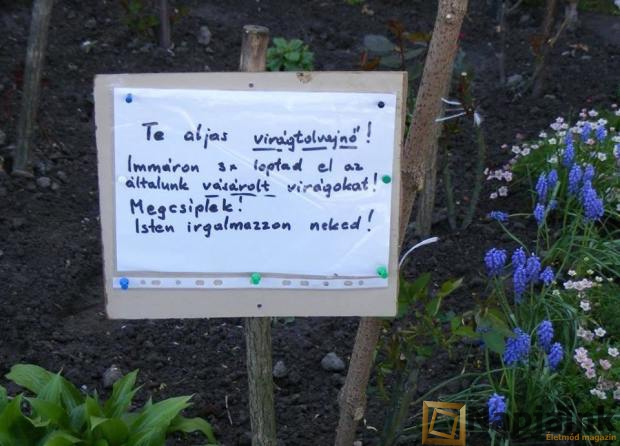 Te aljas virágtolvajnő!
Immáron 3x loptad el az
általunk vásárolt virágokat!
Megcsíplek!
Isten irgalmazzon neked!
Életmód magazin